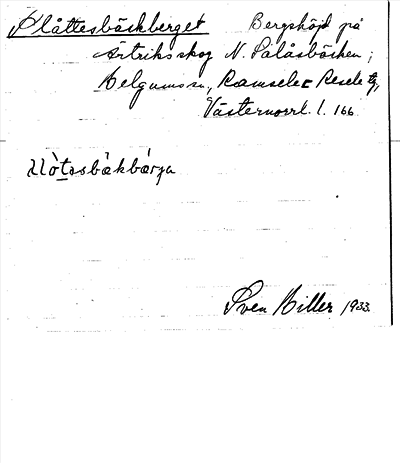 Slåttesbäckberget Bergshöjd på
Artriks skog N. Sålåsbäcken;
Helgums sn, Ramsele o Resele tg,
Västernorrl. l. 166
Sven Hiller 1933.